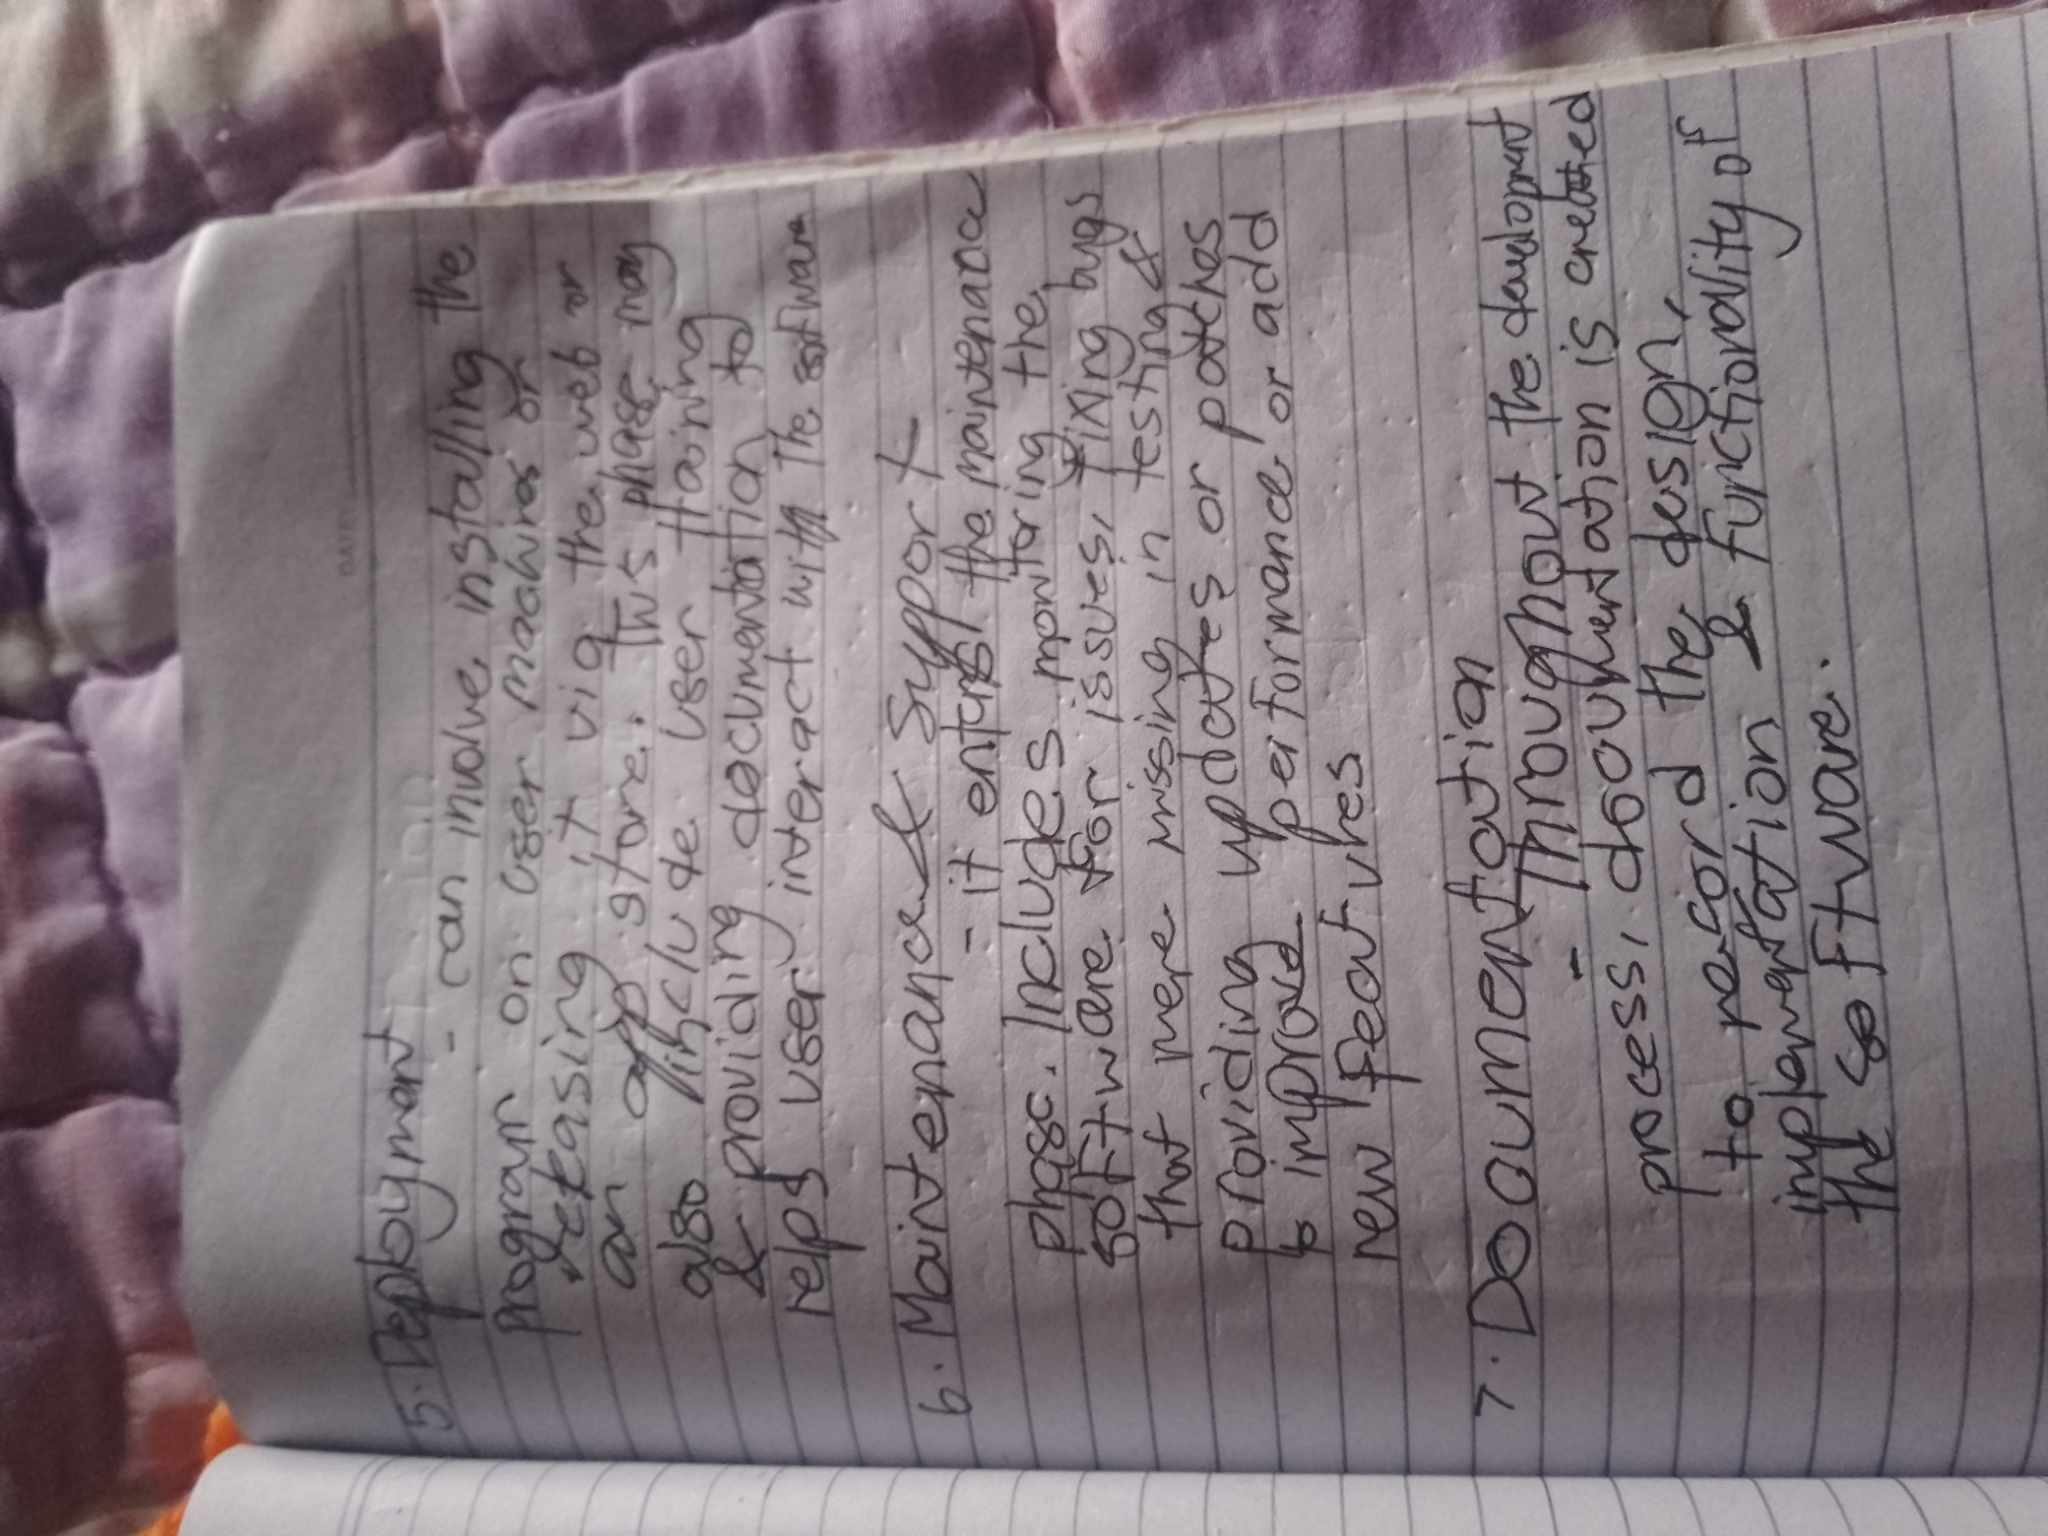 5. Deployment
- can involve installing the
program on user machines or
releasing it via the web or
an app store. This phase may
also include user training
& providing documentation to
helps user interact with the software
6. Maintenance & Support
- it enters the maintenance
phase. Includes monitoring the
software for issues, fixing bugs
that were missing in testing &
providing updates or patches
to improve performance or add
new features
7. Documentation
- Throughout the development
process, documentation is created
to record the design,
implementation & functionality of
the software.